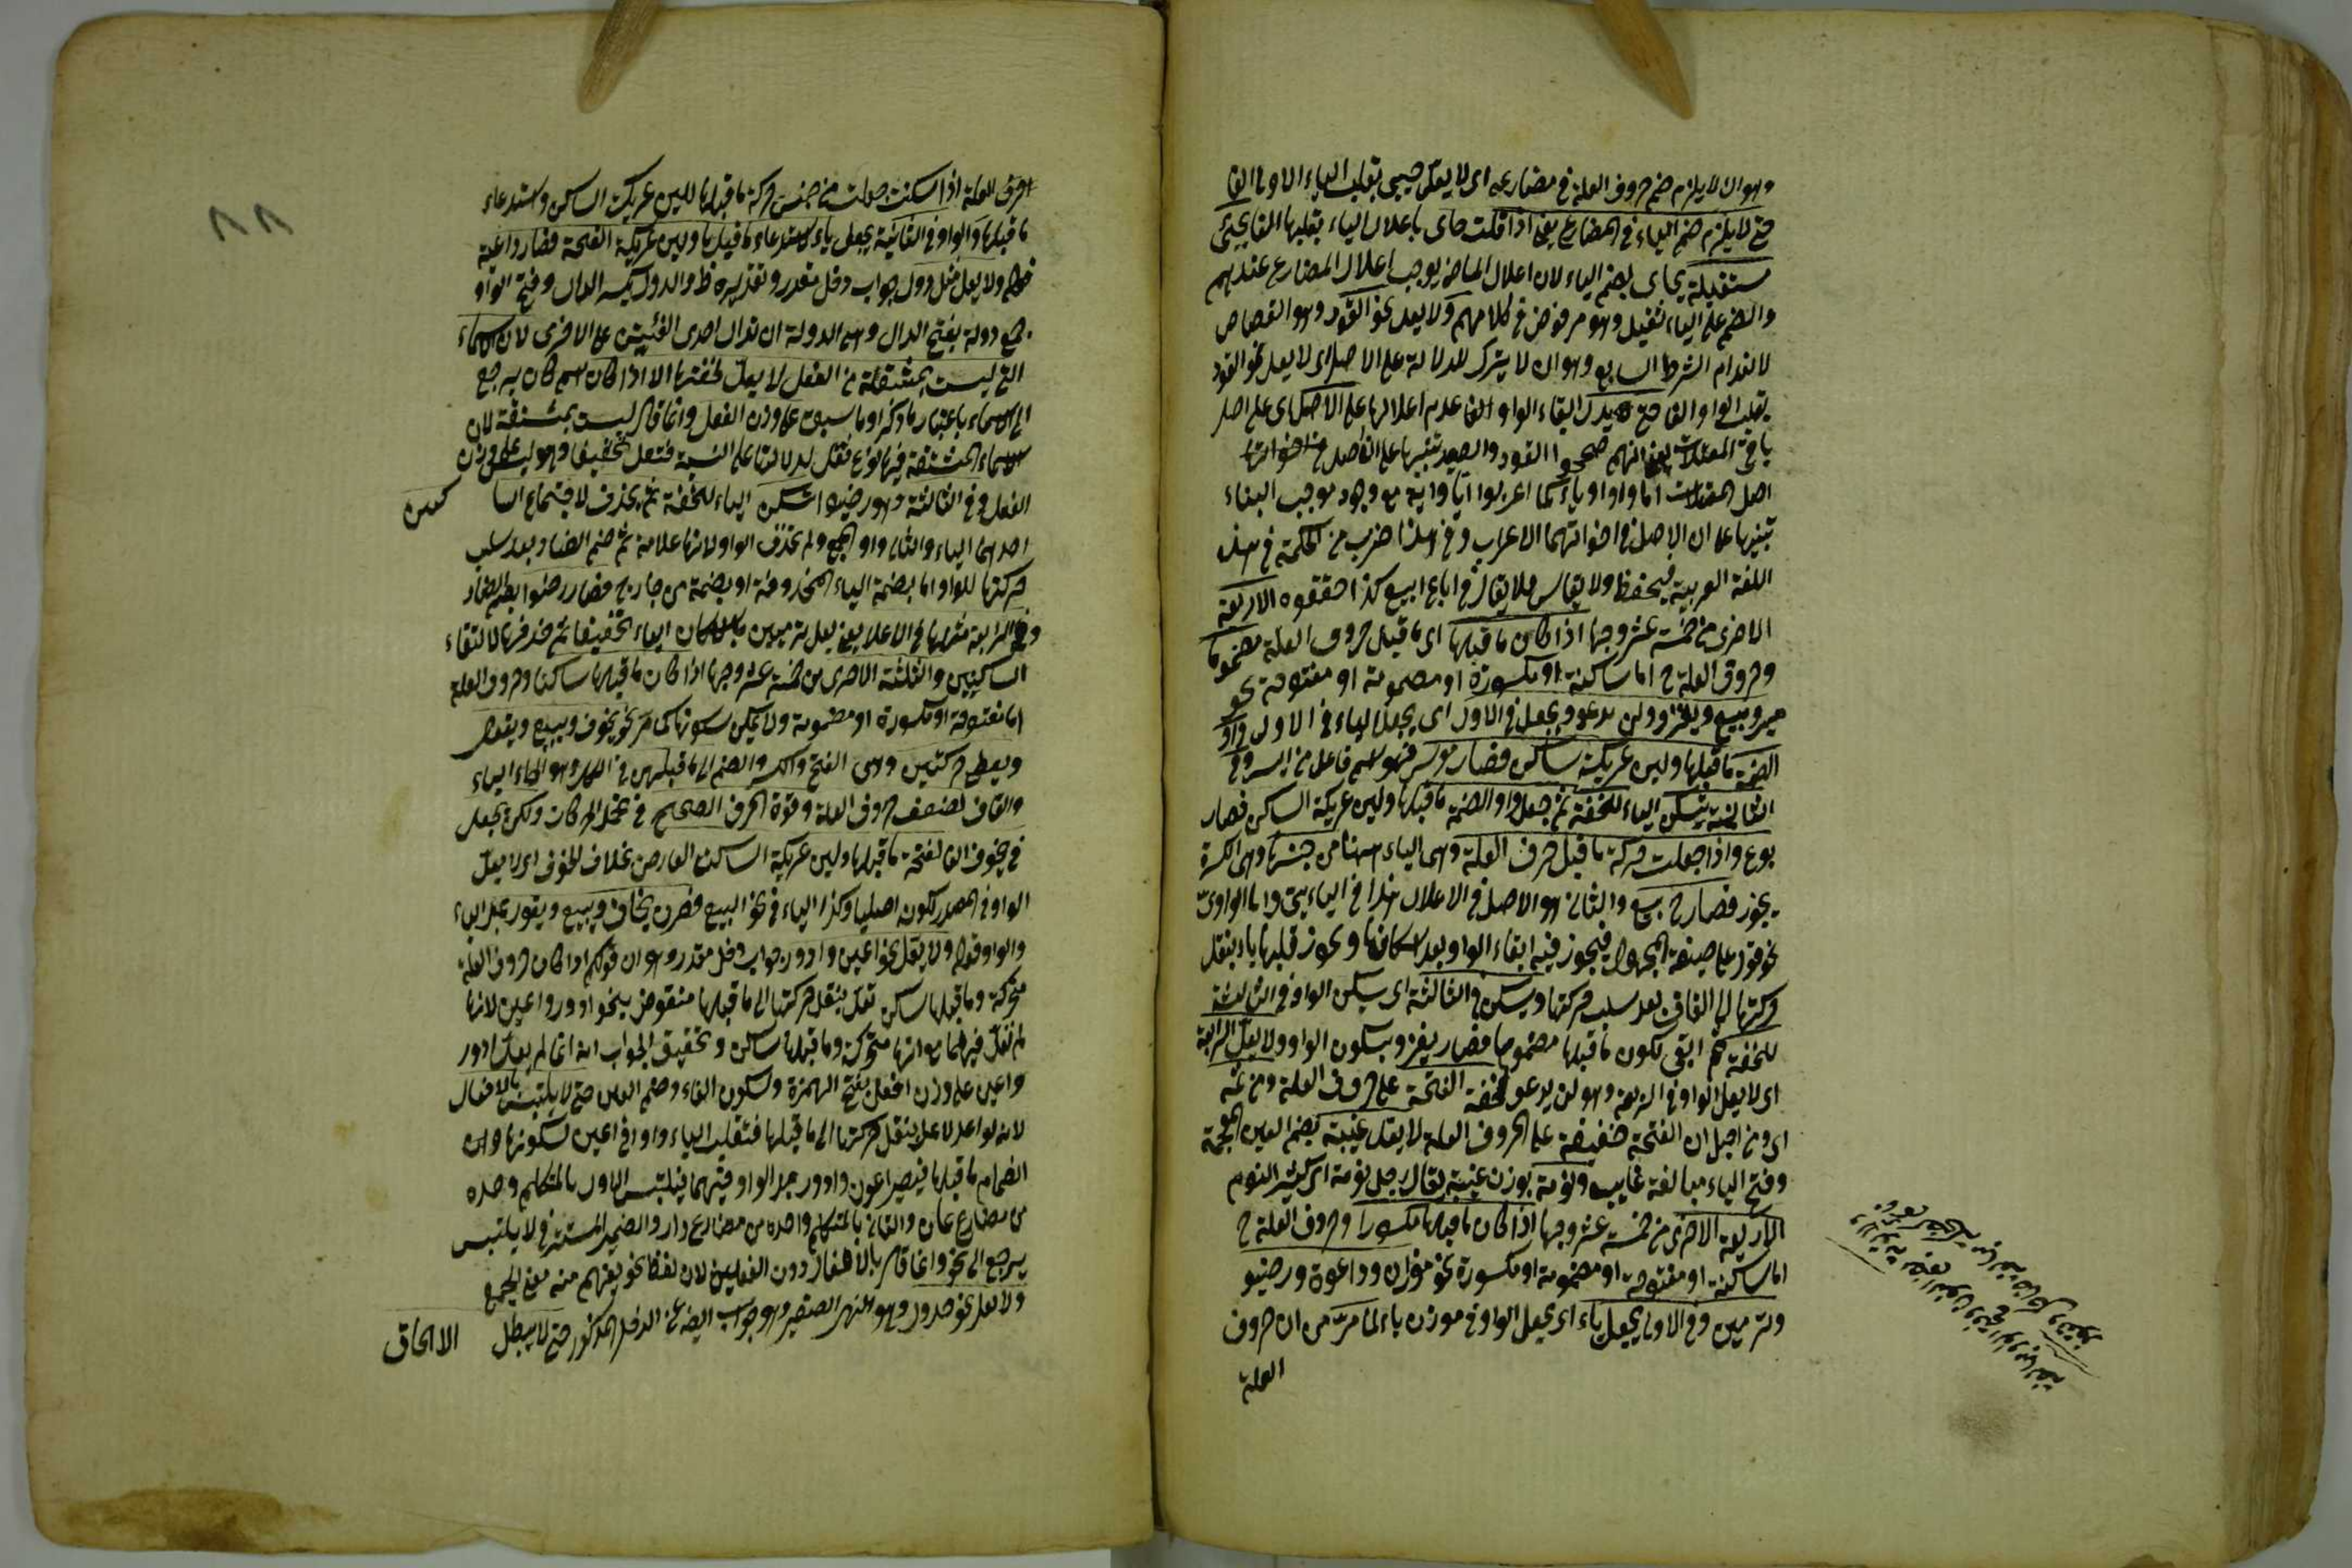 وهو ان لا يلزم ضم حروف العلة في مضارعه اى لا يعل حيي بقلب الياء الاولى الفا
حتى لا يلزم ضم الياء في المضارع يعنى اذا قلت حاى باعلال الياء بقلبها الفا يجئ
مستقبله يحاى بضم الياء لان اعلال الماضى يوجب اعلال المضارع عندهم
والضم على الياء ثقيل وهو مرفوض في كلامهم ولا يعل نحو القود وهو القصاص
لانعدام الشرط السابع وهو ان لا يترك للدلالة على الاصل اى لا يعل نحو القود
بقلب الواو الفا حتى يدل ابقاء الواو عدم اعلالها على الاصل اى على اصل
باقى المعتلات يعنى انهم صححوا القود والصيد تنبيها على الاصل من اخواتها
اصل المعتلات اما واو او ياء كما اعربوا ايا واية مع وجود موجب البناء
تنبيها على ان الاصل في اخواتهما الاعراب وفي هذا ضرب من الحكمة في هذه
اللغة العربية فيحفظ ولا يقاس فلا يقال في اباع ابيع كذا حققوه الاربعة
الاخرى من خمسة عشر وجها اذا كان ما قبلها اى ما قبل حروف العلة مضموما
وحروف العلة ح اما ساكنة او مكسورة او مضمومة او مفتوحة نحو
ميسر وبيع ويغزو ولن يدعو ويجعل في الاول اى يجعل الياء في الاول واوا
لضمة ما قبلها ولين عريكة ساكن فصار موسر فهو اسم فاعل من ايسر وفي
الثانية يسكن الياء للخفة ثم جعل واوا لضمة ما قبلها ولين عريكة الساكن فصار
بوع واذا جعلت حركة ما قبل حرف العلة وهى الياء ههنا من جنسها وهى الكسرة
يجوز فصار ح بيع والثانى هو الاصل في الاعلال هذا في اليائى واما الواوى
نحو قول على صيغة المجهول فيجوز فيه ابقاء الواو بعد اسكانها ويجوز قلبها ياء بنقل
حركتها الى القاف بعد سلب حركتها ويسكن في الثالثة اى يسكن الواو في الثالثة
للخفة ثم ابقى لكون ما قبلها مضموما فصار يغزو بسكون الواو ولا يعل الرابعة
اى لا يعل الواو في الرابعة وهو لن يدعو لخفة الفتحة على حروف العلة ومن ثمه
اى ومن اجل ان الفتحة خفيفة على الحروف العلة لا يعل غيبة بضم الغين المعجمة
وفتح الياء مبالغة غايب ونومة بوزن غيبة يقال رجل نومة اى كثير النوم
الاربعة الاخرى من خمسة عشر وجها اذا كان ما قبلها مكسورا وحروف العلة ح
اما ساكنة او مفتوحة او مضمومة او مكسورة نحو موزان وداعوة ورضيو
وترميين وفي الاولى يجعل ياء اى يجعل الواو في موزان ياء لما مر من ان حروف
العلة
٨٨
حرف العلة اذا سكنت جعلت من جنس حركة ما قبلها للين عريكة الساكن واستدعاء
ما قبلها والواو في الثانية يجعل ياء لاستدعاء ما قبلها ولين عريكة الفتحة فصار داعية
ولا يعل مثل دول جواب دخل مقدر وتقديره ظ والدول بكسر الدال وفتح الواو
جمع دولة بفتح الدال وهى الدولة ان تدال احدى الفئتين على الاخرى لان الاسماء
التى ليست بمشتقة من الفعل لا يعل لخفتها الا اذا كان
الى الاسماء باعتبار ما ذكر او ما سبق على وزن الفعل وانما قال ليست بمشتقة لان
الاسماء المشتقة فيها نوع ثقل لدلالتها على النسبة فتعل تخفيفا وهو ليس على وزن
الفعل وفي الثالثة وهو رضيوا اسكن الياء للخفة ثم يحذف لاجتماع السا
كنين
احدهما الياء والثانى واو الجمع ولم تحذف الواو لانها علامة ثم ضم الضاد بعد سلب
حركتها للواو اما بضمة الياء المحذوفة او بضمة من خارج فصار رضوا بضم الضاد
والرابعة مثلها في الاعلال يعنى يعل ترميين باسكان الياء تخفيفا ثم حذفها لالتقاء
الساكنين والثلثة الاخرى من خمسة عشر وجها اذا كان ما قبلها ساكنا وحروف العلة
اما مفتوحة او مكسورة او مضمومة ولا يمكن سكونها كما مر نحو يخوف ويبيع ويقول
ويعطى حركتهن وهى الفتح والكسر والضم الى ما قبلهن في الكل وهو الخاء الياء
والقاف لضعف حروف العلة وقوة الحرف الصحيح في تحمل الحركات ولكن يجعل
في يخوف الفا لفتحة ما قبلها ولين عريكة الساكن العارض بخلاف الخوف اى لا يعل
الواو في المصدر لكونه اصليا وكذا الياء في نحو البيع فصرن يخاف ويبيع ويقول
ولا يعل نحو اعين وادور جواب دخل مقدر وهو ان قولكم اذا كان حروف العلة
متحركة وما قبلها ساكن تعل بنقل حركتها الى ما قبلها منقوض بنحو ادور واعين لانها
لم تعل فيهما مع انها متحركة وما قبلها ساكن وتحقيق الجواب انه انما لم يعل ادور
واعين على وزن افعل بفتح الهمزة وسكون الفاء وضم العين حتى لا يلتبس بالافعال
لانه لو اعل لاعل بنقل حركتها الى ما قبلها فتقلب الياء واوا في اعين لسكونها و
انضمام ما قبلها فيصير اعون وادور فيلتبس الاول بالمتكلم وحده
من مضارع عان والثانى بالمتكلم وحده من مضارع دار والضمير المستتر في لا يلتبس
يرجع الى نحو وانما قال بالافعال دون الفعلين لان لفظ نحو يفهم منه معنى الجمع
ولا يعل نحو جدول وهو النهر الصغير وهو جواب ايضا عن الدخل المذكور حتى لا يبطل
الالحاق